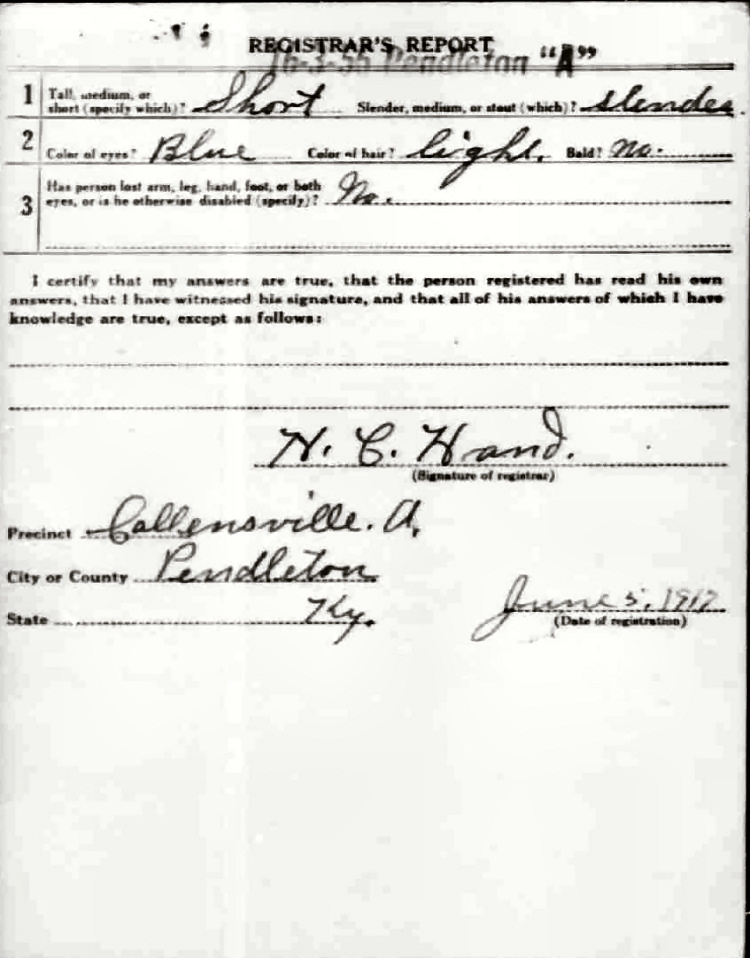 REGISTRAR'S REPORT "A"
16-3-35 Pendleton
1 Tall, medium, or short (specify which)? Short Slender, medium, or stout (which)? slender.
2 Color of eyes? Blue Color of hair? light. Bald? No.
3 Has person lost arm, leg, hand, foot, or both eyes, or is he otherwise disabled (specify)? No.
I certify that my answers are true, that the person registered has read his own
answers, that I have witnessed his signature, and that all of his answers of which I have
knowledge are true, except as follows:
H. C. Hand.
(Signature of registrar)
Precinct Callensville. A,
City or County Pendleton
State Ky.
June 5, 1917
(Date of registration)